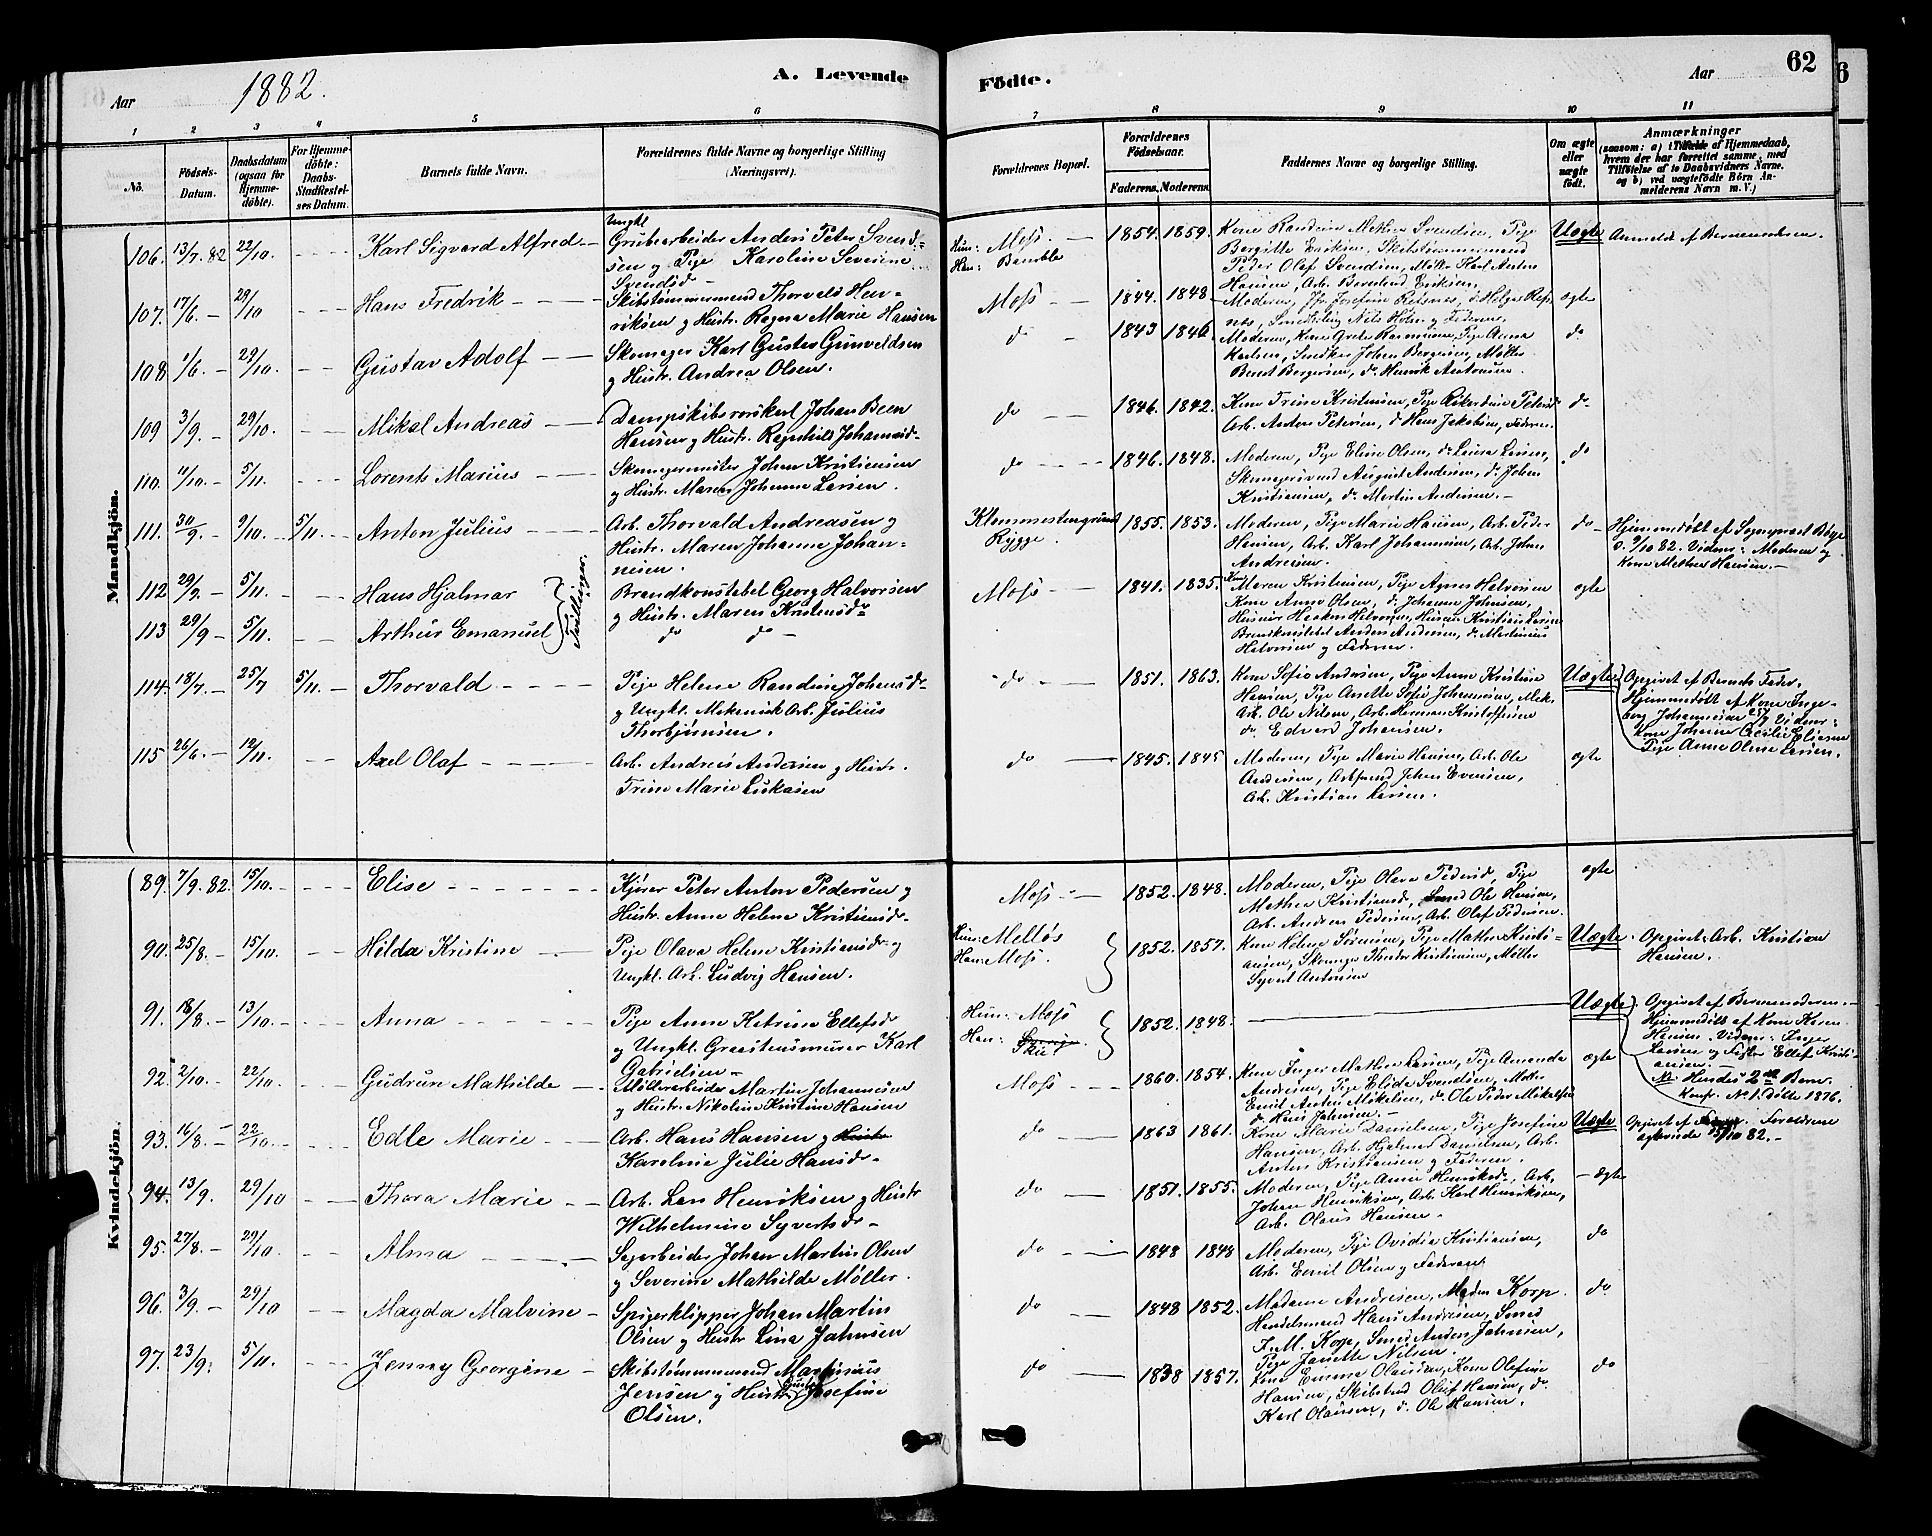 Aar 1882. A. Levende
Födte. Aar 62
6
1 2 3 4 5 6
7 8 9 10 11
No.
Födsels-
Datum.
Daabsdatum
(ogsaa for
Hjemme-
döbte).
For Hjemme-
döbte:
Daabs-
Stadfæstel-
ses Datum.
Barnets fulde Navn.
Forældrenes fulde Navne og borgerlige Stilling
(Næringsvei).
Forældrenes Bopæl.
Forældrenes
Födselsaar.
Faderens. Moderens.
Faddernes Navne og borgerlige Stilling.
Om ægte
eller
uægte
födt.
Anmærkninger
(saasom: a) i Tilfælde af Hjemmedaab,
hvem der har forrettet samme, med
Tilföielse af to Daabsvidners Navne.
og b) ved uægtefödte Börn An-
melderens Navn m. V.)
Mandkjön.
106. 13/7. 82 22/10. Karl Sigvard Alfred
Ungkl
Grubearbeider Anders Peter Svend-
sen og Pige Karoline Severine
Svendsd
Hun: Moss
Han: Bamble
1854. 1859.
Uægte Anmeldt af Barnemoderen.
107. 17/6. 29/10 Hans Fredrik
Skibstømmermand Thorvald Hen-
riksen og Hustr. Ragna Marie Hansen
Moss 1844. 1848
Moderen, Jfr Josefine Refsnes, d. Helga Refs
nes, Smedlærling Nils Holm og Faderen.
ægte
108 1/6. 29/10. Gustav Adolf
Skomager Karl Gustav Gunveldsen
og Hustr. Andrea Olsen.
do 1843 1846.
Moderen, Kone Grete Rasmussen, Pige Anna
Karlsen, Snedker Johan Bergersen, Møller
Bernt Bergersen, do Henrik Antonsen.
do
109 3/9. 29/10. Mikal Andreas
Dampskibsrorskarl Johan Been
Hansen og Hustr. Ragnhild Johannesd.
do 1846. 1842.
Kone Trine Kristensen, Pige Rikardine Petersd
Arb. Anton Petersen, d Hans Jakobsen, Faderen.
do
110. 11/10. 5/11. Lorents Marius
Skomagermester Johan Kristiansen
og Hustr. Maren Johanne Larsen.
do 1846. 1848.
Moderen, Pige Eline Olsen, do Laura Larsen,
Skomagersvend August Andersen, do Johan
Kristiansen, do Martin Andersen.
do
111. 30/9. 9/10. 5/11 Anton Julius
Arb. Thorvald Andreasen og
Hustr. Maren Johanne Johan-
nesen.
Rygge.
1855. 1853.
Moderen, Pige Marie Hansen, Arb. Peder
Hansen, Arb. Karl Johannesen, Arb. Johan
Andresen.
do
Hjemmedøbt af Sognepræst
d. 9/10 82. Vidner: Moderen og
Kone Mathea Hansen.
112 29/9. 5/11. Hans Hjalmar
Tvillinger.
Brandkonstabel Georg Halvorsen
og Hustr. Maren Kristensdr
Moss 1841. 1835.
Kone Maren Kristensen, Pige Agnes Halvorsen
Kone Anne Olsen, d. Johanne Johnsen,
ægte
113 29/9 5/11. Arthur Emanuel
do do
Brandkonstabel Anders Andersen, do Martinius
Halvorsen og Faderen.
114. 18/7. 25/7 5/11. Thorvald
Pige Helene Randine Johansd.
og Ungkl. Mekanisk Arb. Julius
Thorbjørnsen.
do 1851. 1863.
Kone Sofie Andersen, Pige Anne Kristine
Hansen, Pige Anette Sofie Johannesen, Mek.
Arb. Ole Nilsen, Arb. Herman Kristoffersen
do Edvard Johansen.
Uægte
Opgivet af Barnets Fader.
Hjemmedøbt af Kone Inge-
borg Johannesen 25/7 Vidner:
Kone Johanne Cecilie Eliasen
Pige Anne Oline Larsen.
115 26/6. 12/11. Axel Olaf
Arb. Andreas Andersen og Hustr.
Trine Marie Lukasen
do 1845. 1845
Moderen, Pige Marie Hansen, Arb. Ole
Andersen, Arbfmd Johan Evensen,
Arb. Kristian Larsen.
ægte
Kvindekjön.
89. 7/9. 82. 15/10. Elise
Kjører Peter Anton Pedersen og
Hustr. Anne Helene Kristiansdr.
Moss 1852. 1848.
Moderen, Pige Olava Pedersd, Pige
Mathea Kristiansd, Smed Ole Hansen,
Arb. Andreas Pedersen, Arb. Olaf Pedersen.
ægte
90. 25/8. 15/10. Hilda Kristine
Pige Olava Helene Kristiansdr og
Ungkl. Arb. Ludvig Hansen.
Hun: Melløs
Han: Moss.
1852. 1857.
Kone Helene Sørensen, Pige Mathea Kristi-
ansen, Skomager Theodor Kristiansen, Møller
Syvert Antonsen
Uægte. Opgivet: Arb. Kristian
Hansen.
91. 18/8. 13/10. Anna
Pige Anne Katrine Ellefsdr
og Ungkl. Graastensmurer Karl
Gabrielsen
Hun: Moss
Han: Ski
1852. 1848.
Uægte
Opgivet af Barnemoderen.
Hjemmedøbt af Kone Karen
Hansen. Vidner: Inger
Larsen og Fisker Ellef Kristi-
ansen.
NB. Hendes 2det Barn.
Konfr. No 1. døbte 1876.
92. 2/10. 22/10. Gudrun Mathilde
Møllearbeider Martin Johannesen
og Hustr. Nikoline Kristine Hansen
Moss 1860. 1854.
Kone Inger Mathea Larsen, Pige Amanda
Andersen, Pige Elida Svendsen, Møller
Emil Anton Mikelsen, do Ole Peder Mikelsen
do Hans Johnsen.
ægte
93. 16/8. 22/10. Edle Marie
Arb. Hans Hansen og Hustr
Karoline Julie Hansdr.
do 1863 1861.
Kone Marie Danielsen, Pige Josefine
Hansen, Arb. Hjalmar Danielsen, Arb.
Anton Kristiansen og Faderen.
Uægte Opgivet af Forældrene
ægteviede 15/10 82.
94. 13/9. 29/10 Thora Marie
Arb. Lars Henriksen og Hustr
Wilhelmine Syvertsdr.
do 1851. 1855.
Moderen, Pige Anne Henriksdr. Arb.
Johan Henriksen, Arb. Karl Henriksen,
Arb. Olaus Hansen.
ægte
95. 27/8. 29/10. Alma
Sagarbeider Johan Martin Olsen
og Severine Mathilde Møller.
do 1848 1848
Moderen, Pige Ovidia Kristiansen,
Arb. Emil Olsen og Faderen.
do
96. 3/9. 29/10 Magda Malvine
Spigerklipper Johan Martin
Olsen og Hustr Lina Johnsen
do 1848 1852.
Madame Andresen, Madm Korp.
Handelsmand Hans Andresen, Smed
F. M. Korp, Smed Anders Johnsen,
Pige Janette Nilsen.
do
97. 23/9. 5/11. Jenny Georgine
Skibstømmermand Martinius
Jensen og Hustr. Gustava Josefine
Olsen.
do 1838 1857.
Kone Emma Olausen, Kone Olefine
Hansen, Skibstmd Oluf Hansen, do
Karl Olausen, do Ole Hansen.
do